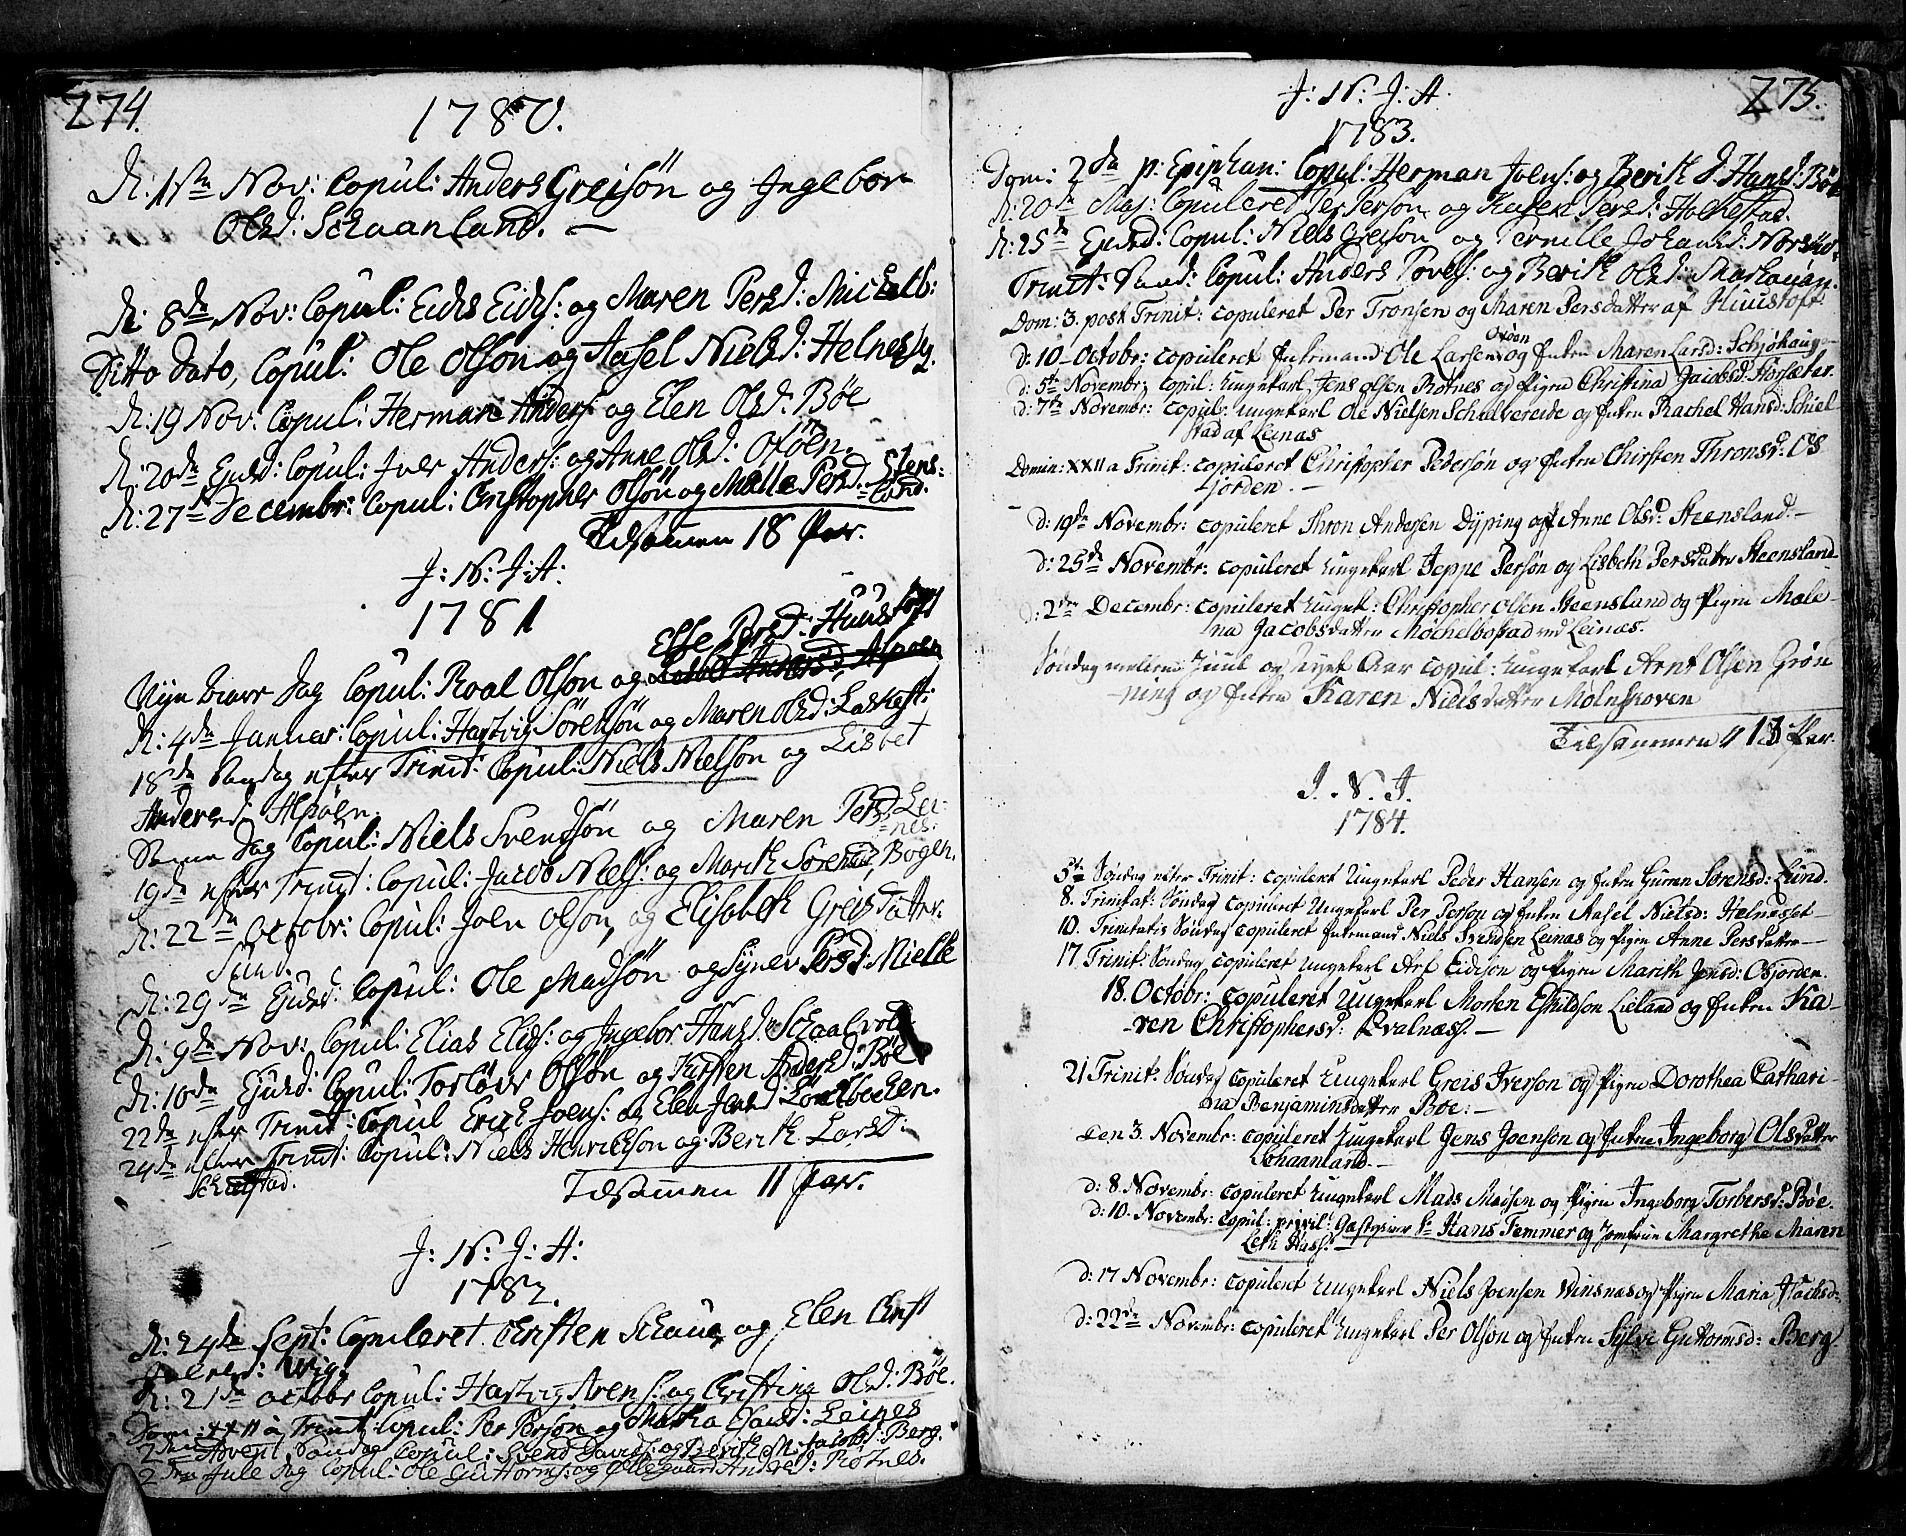 274.
1780.
D: 1ste Nov: Copul: Anders Greisön og Ingebor
Olsd: Schaanland. —
D: 8de Nov: Copul: Eidis Eids: og Maren Persd: Michelb:
Ditto Dato, Copul: Ole Olsön og Aasel Nielsd: Helnessg.
D: 19 Nov: Copul: Herman Anders: og Elen Olsd: Böe
D: 20de Ejusd: Copul: Iver Anders: og Anne Olsd: Oxöen.
D: 27de Decembr: Copul: Christopher Olsön og Malle Persd. Stens=
=land.
Tilsamen 18 Par.
J: N: J: A:
1781
Else Persd: Huustoft
Nyt Aars Dag Copul: Roal Olsön og Lisbet Andersd, Alpöen
D: 4de Januar: Copul: Hartvig Sörensön og Maren Olsd:
18de Söndag efter Trinit: Copul: Niels Nielsön og Lisbet
Andersd: Alpöen.
Samme Dag Copul: Niels Svendsön og Maren Persd: Lei=
=nes:
19de efter Trinit: Copul: Jacob Niels: og Marith Sörensd, Bogen.
D: 22de Octobr: Copul: Joen Olsön og Elisabeth Greisdatter.
Sund.
D: 29de Ejusd: Copul: Ole Madsön og Synev Persd: Mielle
D: 9de Nov: Copul: Elias Elids: og Ingebor Hansd: Schaalvold
D: 10de Ejusd: Copul: Torlöv Olsön og Kirsten Andersd: Böe
22de efter Trinit: Copul Erich Joens: og Elen Jensd: Lövelbechen.
24de efter Trinit: Copul: Niels Henrichsön og Berith Larsd:
Schielstad.
Tilsamen 11 Par.
J: N: J: A:
1782.
D: 24de Sept: Copuleret Christen Schaug og Elen Christ
D: 21de Octobr Copul: Hartvig Svens: og Christina Olsd: Böe.
Dom: XXII à Trinit: Copul: Per Persön og Martha Olsd: Leines
2den Advent Söndag Copul: Svend Davids: og Berith M: Jacobs: Berg.
2den Jule Dag Copul: Ole Guttorms: og Ollegaard Andersd: Rötnes.
275.
J: N: J: A.
1783.
Dom: 2da p: Epiphan: Copul: Herman Joens: og Berith d: Hansd: Böe
D: 20de Maj: Copuleret Per Persön og Karen Persd: Hochestad.
D: 25de Ejusd: Copul: Niels Greisön og Pernille Johansd:
Trinit: Sönd: Copul: Anders Povels: og Berith Olsd:
Dom: 3. post Trinit: copuleret Per Tronsen og Maren Persdatter af Huustoft
Oxöen
d: 10 Octobr: copuleret Enkemand Ole Larsen og Enken Maren Larsd: Schjöhaug—
d: 5te Novembr: copul: Ungekarl Jens Olsen Rötnes og Pigen Christina Jacobsd: Horsæter.
d: 7de Novembr: copul: Ungekarl Ole Nielsen Schelvereide og Enken Rachel Hansd: Schiel-
stad af Leinæs
Domin: XXII a Trinit: copuleret Christopher Pedersön og Enken Chirsten Thronsd: Os
fjorden. —
d: 19de Novembr: copuleret Thron Andersen Dyping og Anne Olsd: Steensland.—
d: 25de Novembr: copuleret Ungekarl Jeppe Persön og Lisbeth Persdatter Steensland
d: 2den Decembr: copuleret Ungek: Christopher Olsen Steensland og Pigen Male-
na Jacobsdatter Möchelbostad ved Leinæs.
Söndag mellem Juul og Nyet Aar copul: Ungekarl Arnt Olsen Grön
-ning og Enken Karen Nielsdatter Molnshoven
Tilsammen 13 Par.
J. N. J.
1784.
5te Söndag efter Trinit: copuleret Ungekarl Peder Hansen og Enken Gurren Sörensd: Lund.
8. Trinitat: Söndag copuleret Ungekarl Per Persön og Enken Aasel Nielsd: Helnesset—
10. Trinitatis Söndag copuleret Enkemand Niels Svendsen Leinæs og Pigen Anne Persdatter—
17 Trinit: Söndag copuleret Ungekarl Arf Eidison og Pigen Marith Jonsd: Osjorden.
18. Octobr: copuleret Ungekarl Morten Eskildsön Lieland og Enken Ka-
-ren Christophersd: Qvalnæss. —
21 Trinit: Söndag copuleret Ungekarl Greis Iverson og Pigen Dorothea Cathari-
na Benjaminsdatter Böe:—
den 3. Novembr: copuleret Ungekarl Jens Joenson og Enken Ingeborg Olsdatter
Schaanland.—
d: 8. Novembr: copuleret Ungekarl Mads Madsen og Pigen Ingeborg Torbersd: Böe.
d: 10. Novembr: copul: privil: Gæstgiver Sr Hans Femmer og Jomfrue Margrethe Maren
Leth Hass:—
d: 17 Novembr: copuleret Ungekarl Niels Joensen Winsnæs og Pigen Maria Isachsd:
d: 22de Novembr: copuleret Ungekarl Per Olsön og Enken Sylve Guttormsd: Berg.